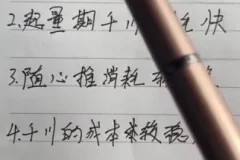 2.起量期千川消耗快
3.随心推消耗
4.千川的成本来较稳